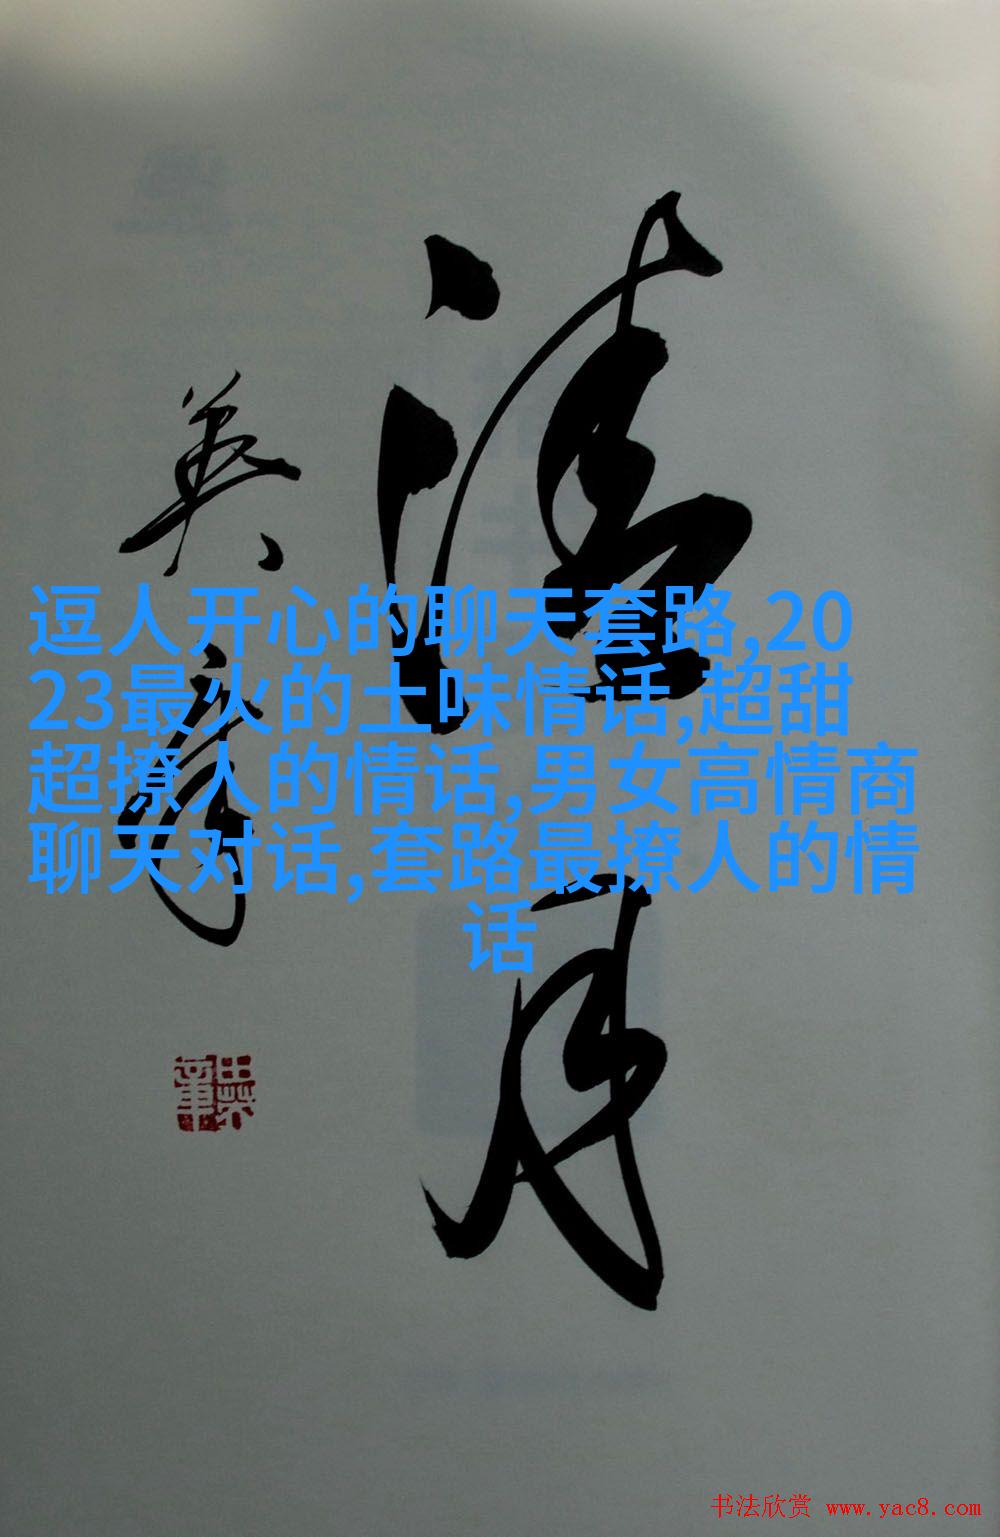 清月
英章
逗人开心的聊天套路,20
23最火的土味情话,超甜
超撩人的情话,男女高情商
聊天对话,套路最撩人的情
话
书法欣赏 www.yac8.com